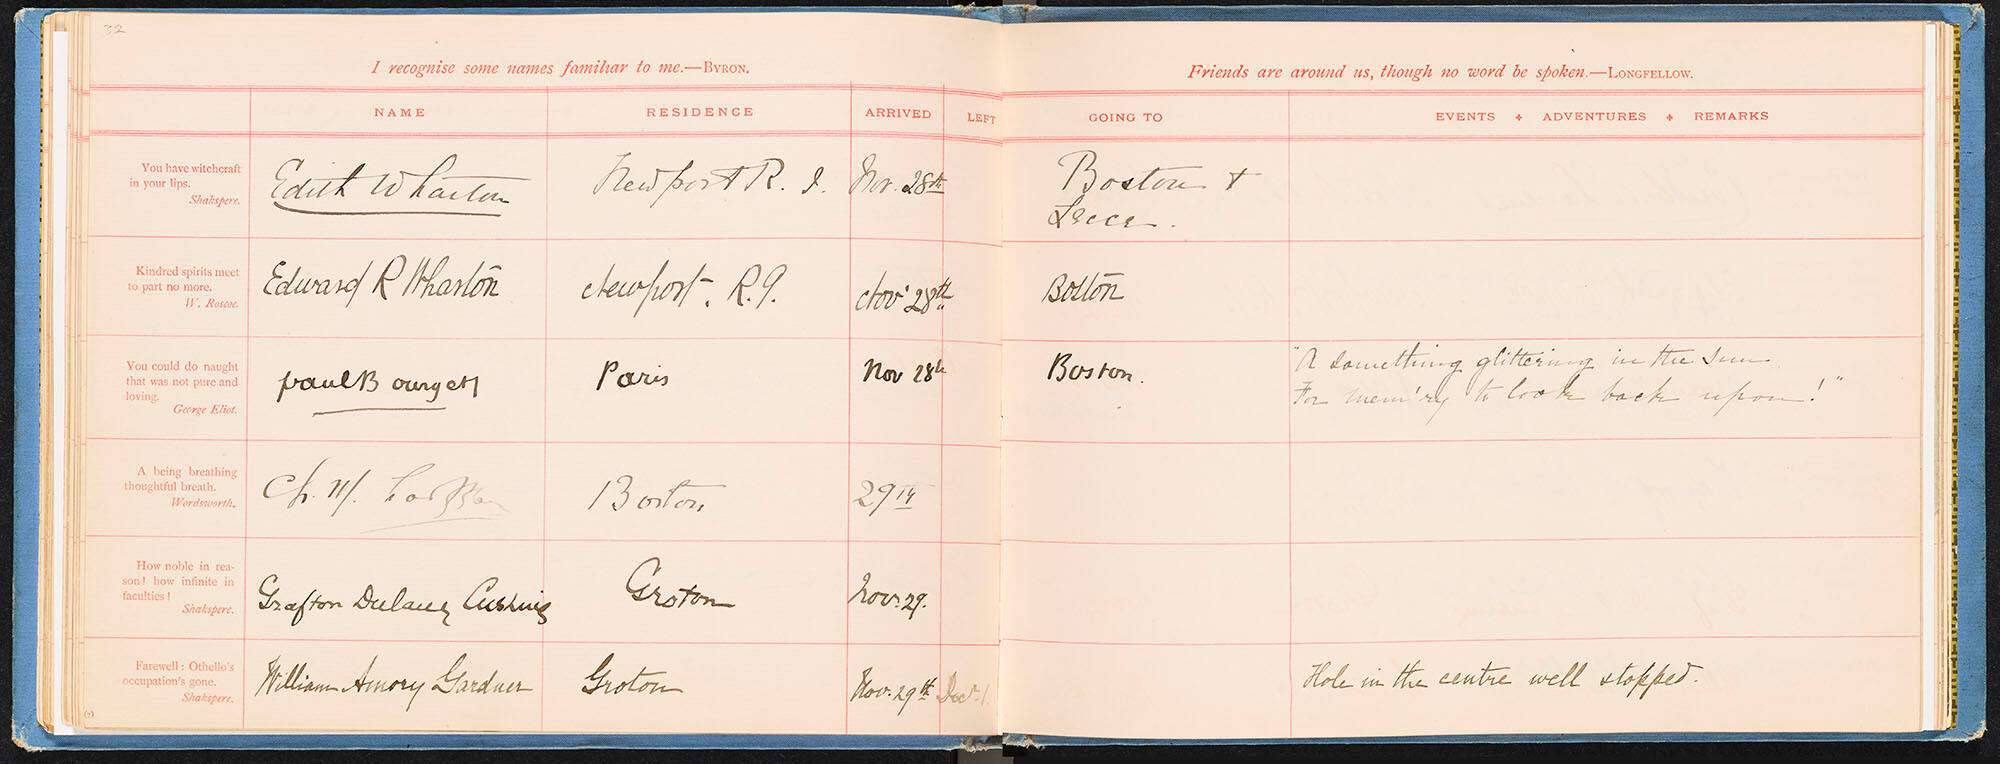 32
I recognise some names familiar to me.—BYRON.
NAME RESIDENCE ARRIVED LEFT
You have witchcraft
in your lips.
Shakspere.
Edith Wharton Newport R. I. Nov. 28th
Kindred spirits meet
to part no more.
W. Roscoe.
Edward R Wharton Newport. R.I. Nov' 28th
You could do naught
that was not pure and
loving.
George Eliot.
paul Bourget Paris Nov 28th
A being breathing
thoughtful breath.
Wordsworth.
Ch. M. Boston 29th
How noble in rea-
son! how infinite in
faculties!
Shakspere.
Grafton Dulany Cushing Groton Nov. 29.
Farewell: Othello's
occupation's gone.
Shakspere.
William Amory Gardner Groton Nov. 29th Dec. 1.
Friends are around us, though no word be spoken.—LONGFELLOW.
GOING TO EVENTS + ADVENTURES + REMARKS
Boston +
Boston
Boston.
"A something glittering in the sun
For mem'ry to look back upon!"
Hole in the centre well stopped.